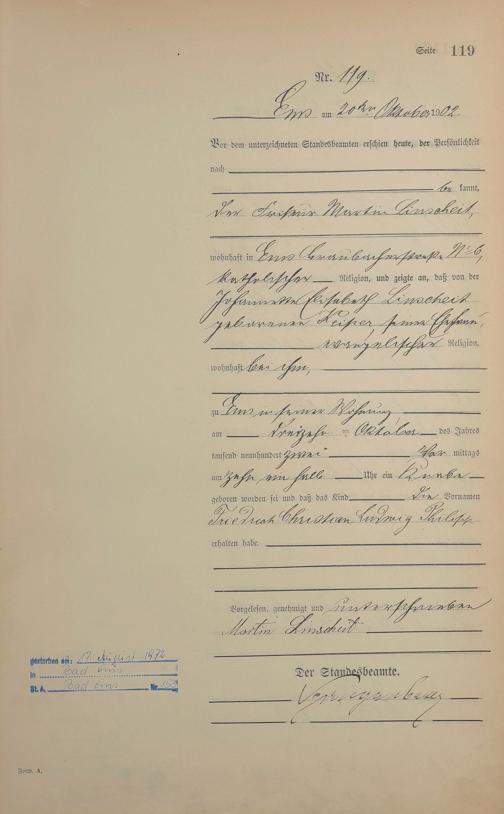 Seite 119
Nr. 119.
Ems am 20ten Oktober 1902
Vor dem unterzeichneten Standesbeamten erschien heute, der Persönlichkeit
nach
be kannt,
der Friseur Martin Linscheit,
wohnhaft in Ems Braubacherstraße No 6,
katholischer Religion, und zeigte an, daß von der
Johannette Elisabeth Linscheit
geborenen seiner Ehefrau,
evangelischer Religion,
wohnhaft bei ihm,
zu Ems in seiner Wohnung
am dreizehn = Oktober des Jahres
tausend neunhundert zwei Vor mittags
um zehn ein halb Uhr ein Knabe
geboren worden sei und daß das Kind die Vornamen
Friedrich Christian Ludwig Philipp
erhalten habe.
Vorgelesen, genehmigt und unterschrieben
Martin Linscheit
Der Standesbeamte.
gestorben am: 17. August 1972
in Bad Ems
St. A. Bad Ems Nr.
Form. A.